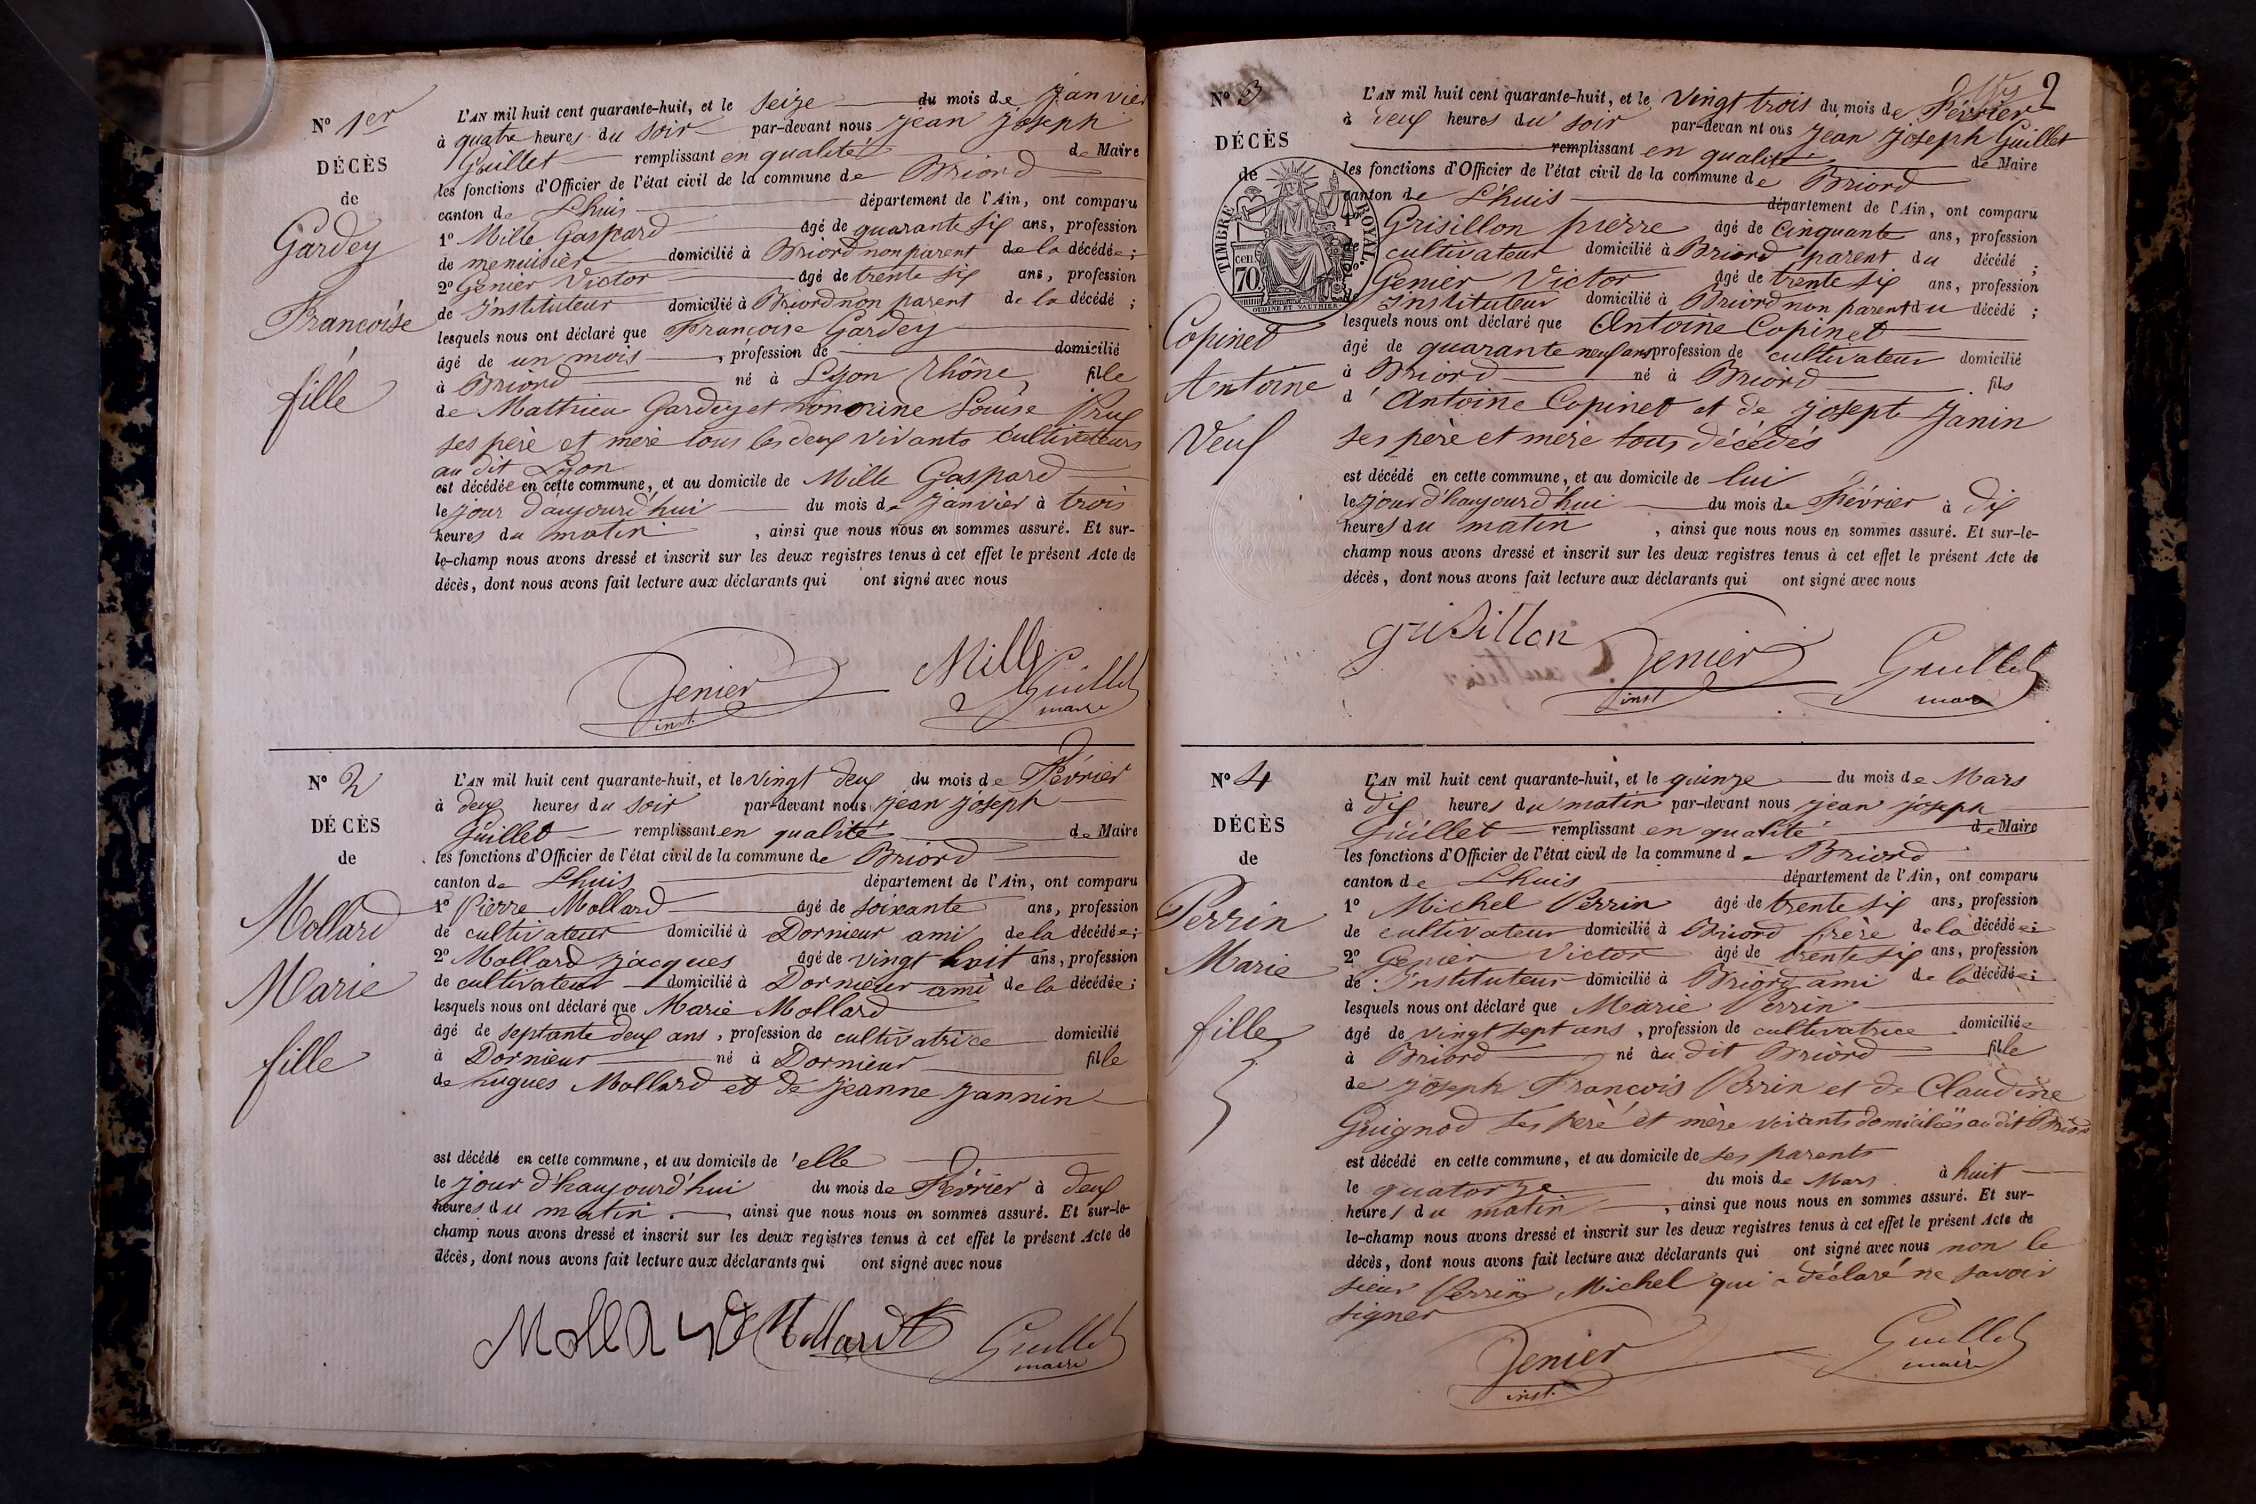 N° 1er
DÉCÈS
de
Gardey
Francoise
fille
L'AN mil huit cent quarante-huit, et le seize du mois de Janvier
à quatre heures du soir par-devant nous Jean Joseph
Guillet remplissant en qualité de Maire
les fonctions d'Officier de l'état civil de la commune de Briord
canton de Lhuis département de l'Ain, ont comparu
1° Mille Gaspard âgé de quarante six ans, profession
de menuisier domicilié à Briord non parent de la décédée ;
2° Genier Victor âgé de trente six ans, profession
de Instituteur domicilié à Briord non parent de la décédé ;
lesquels nous ont déclaré que Françoise Gardey
âgé de un mois, profession de domicilié
à Briord né à Lyon Rhône, fille
de Mathieu Gardey et honorine Louise
ses père et mère tous les deux vivants cultivateurs
au dit Lyon
est décédée en cette commune, et au domicile de Mille Gaspard
le jour d'aujourd'hui du mois de Janvier à trois
heures du matin, ainsi que nous nous en sommes assuré. Et sur-
le-champ nous avons dressé et inscrit sur les deux registres tenus à cet effet le présent Acte de
décès, dont nous avons fait lecture aux déclarants qui ont signé avec nous
Mille
Genier Guillet
inst. maire
N° 2
DÉCÈS
de
Mollard
Marie
fille
L'AN mil huit cent quarante-huit, et le vingt deux du mois de Février
à deux heures du soir par-devant nous Jean Joseph
Guillet remplissant en qualité de Maire
les fonctions d'Officier de l'état civil de la commune de Briord
canton de Lhuis département de l'Ain, ont comparu
1° Pierre Mollard âgé de soixante ans, profession
de cultivateur domicilié à Dornieur ami de la décédée ;
2° Mollard Jacques âgé de vingt huit ans, profession
de cultivateur domicilié à Dornieur ami de la décédée ;
lesquels nous ont déclaré que Marie Mollard
âgé de septante deux ans, profession de cultivatrice domicilié
à Dornieur né à Dornieur fille
de hugues Mollard et de Jeanne Jannin
est décédé en cette commune, et au domicile de 'elle
le jour d'haujourd'hui du mois de Février à deux
heures du matin, ainsi que nous nous en sommes assuré. Et sur-le-
champ nous avons dressé et inscrit sur les deux registres tenus à cet effet le présent Acte de
décès, dont nous avons fait lecture aux déclarants qui ont signé avec nous
Mollard Guillet
maire
2
N° 3
DÉCÈS
de
TIMBRE ROYAL.
70 cen
OUDINÉ ET VAUTHIER
Copinet
Antoine
Veuf
L'AN mil huit cent quarante-huit, et le vingt trois du mois de Février
à deux heures du soir par-devan nt ous Jean Joseph Guillet
remplissant en qualité de Maire
les fonctions d'Officier de l'état civil de la commune de Briord
canton de Lhuis département de l'Ain, ont comparu
1° Grisillon pierre âgé de cinquante ans, profession
de cultivateur domicilié à Briord parent du décédé ;
2° Genier Victor âgé de trente six ans, profession
de Instituteur domicilié à Briord non parent du décédé ;
lesquels nous ont déclaré que Antoine Copinet
âgé de quarante neuf ans profession de cultivateur domicilié
à Briord né à Briord fils
d' Antoine Copinet et de Josepte Janin
ses père et mère tous décédés
est décédé en cette commune, et au domicile de lui
le jour d'haujourd'hui du mois de Février à dix
heures du matin, ainsi que nous nous en sommes assuré. Et sur-le-
champ nous avons dressé et inscrit sur les deux registres tenus à cet effet le présent Acte de
décès, dont nous avons fait lecture aux déclarants qui ont signé avec nous
grisillon Genier Guillet
inst maire
N° 4
DÉCÈS
de
Perrin
Marie
fille
L'AN mil huit cent quarante-huit, et le quinze du mois de Mars
à dix heures du matin par-devant nous Jean joseph
Guillet remplissant en qualité de Maire
les fonctions d'Officier de l'état civil de la commune de Briord
canton de Lhuis département de l'Ain, ont comparu
1° Michel Perrin âgé de trente six ans, profession
de cultivateur domicilié à Briord frère de la décédée ;
2° Genier Victor âgé de trente six ans, profession
de Instituteur domicilié à Briord ami de la décédée ;
lesquels nous ont déclaré que Marie Perrin
âgé de vingt sept ans, profession de cultivatrice domiciliée
à Briord né au dit Briord fille
de Joseph François Perrin et de Claudine
Guignod ses père et mère vivants domiciliés au dit Briord
est décédé en cette commune, et au domicile de ses parents
le quatorze du mois de Mars à huit
heures du matin, ainsi que nous nous en sommes assuré. Et sur-
le-champ nous avons dressé et inscrit sur les deux registres tenus à cet effet le présent Acte de
décès, dont nous avons fait lecture aux déclarants qui ont signé avec nous non le
sieur Perrin Michel qui a déclaré ne savoir
signer
Genier Guillet
inst. maire